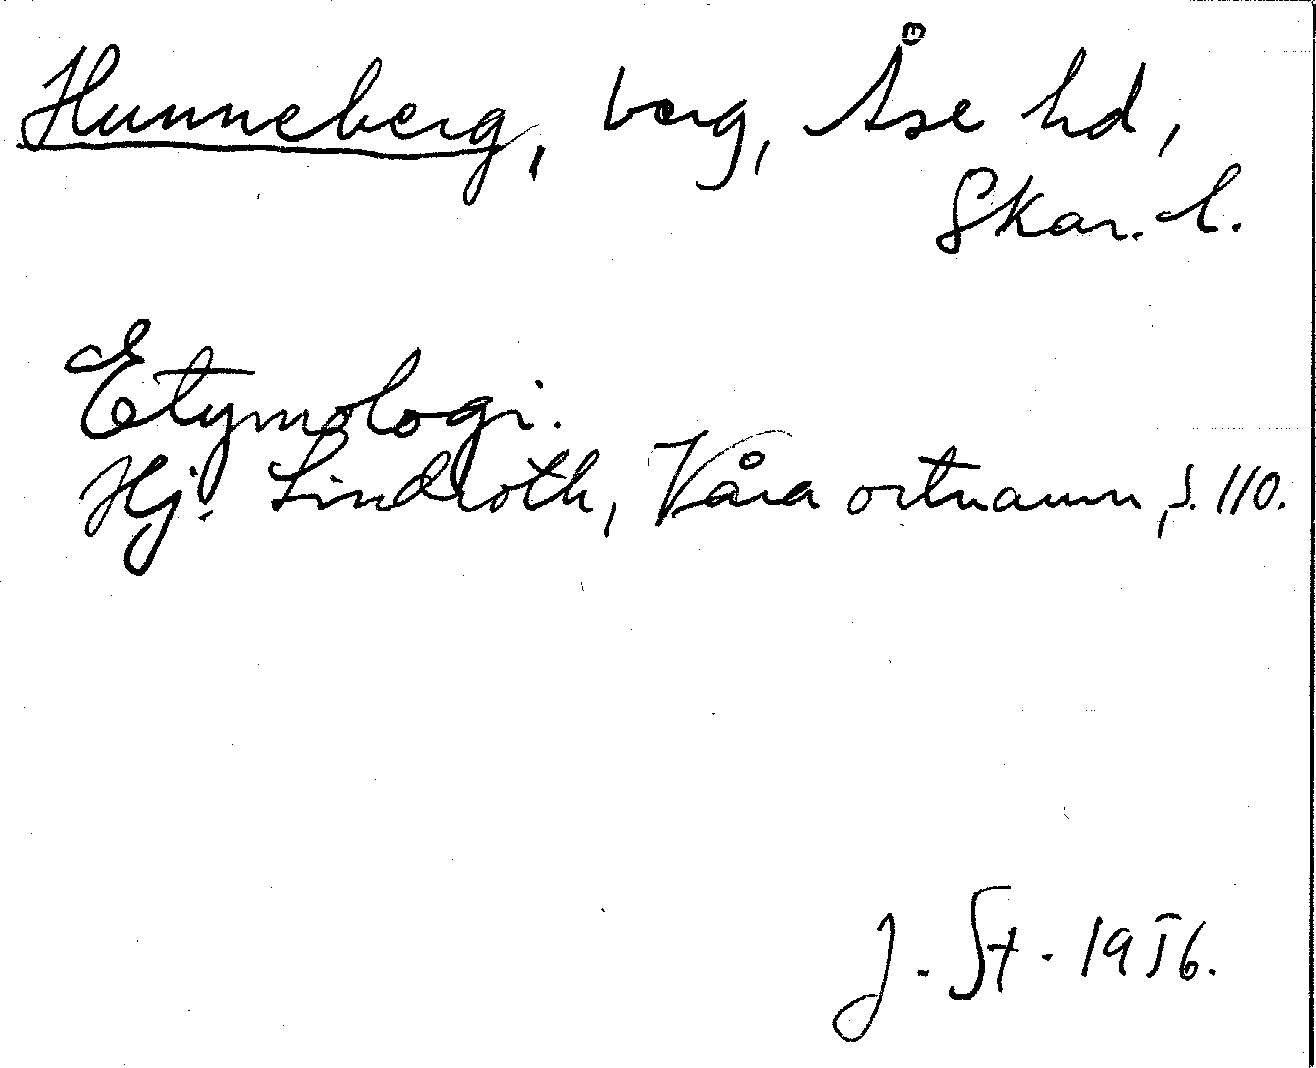 Hunneberg, berg, Åse hd,
Skar. l.
Etymologi.
Hj. Lindroth, Våra ortnamn, s. 110.
J. St. 1956.